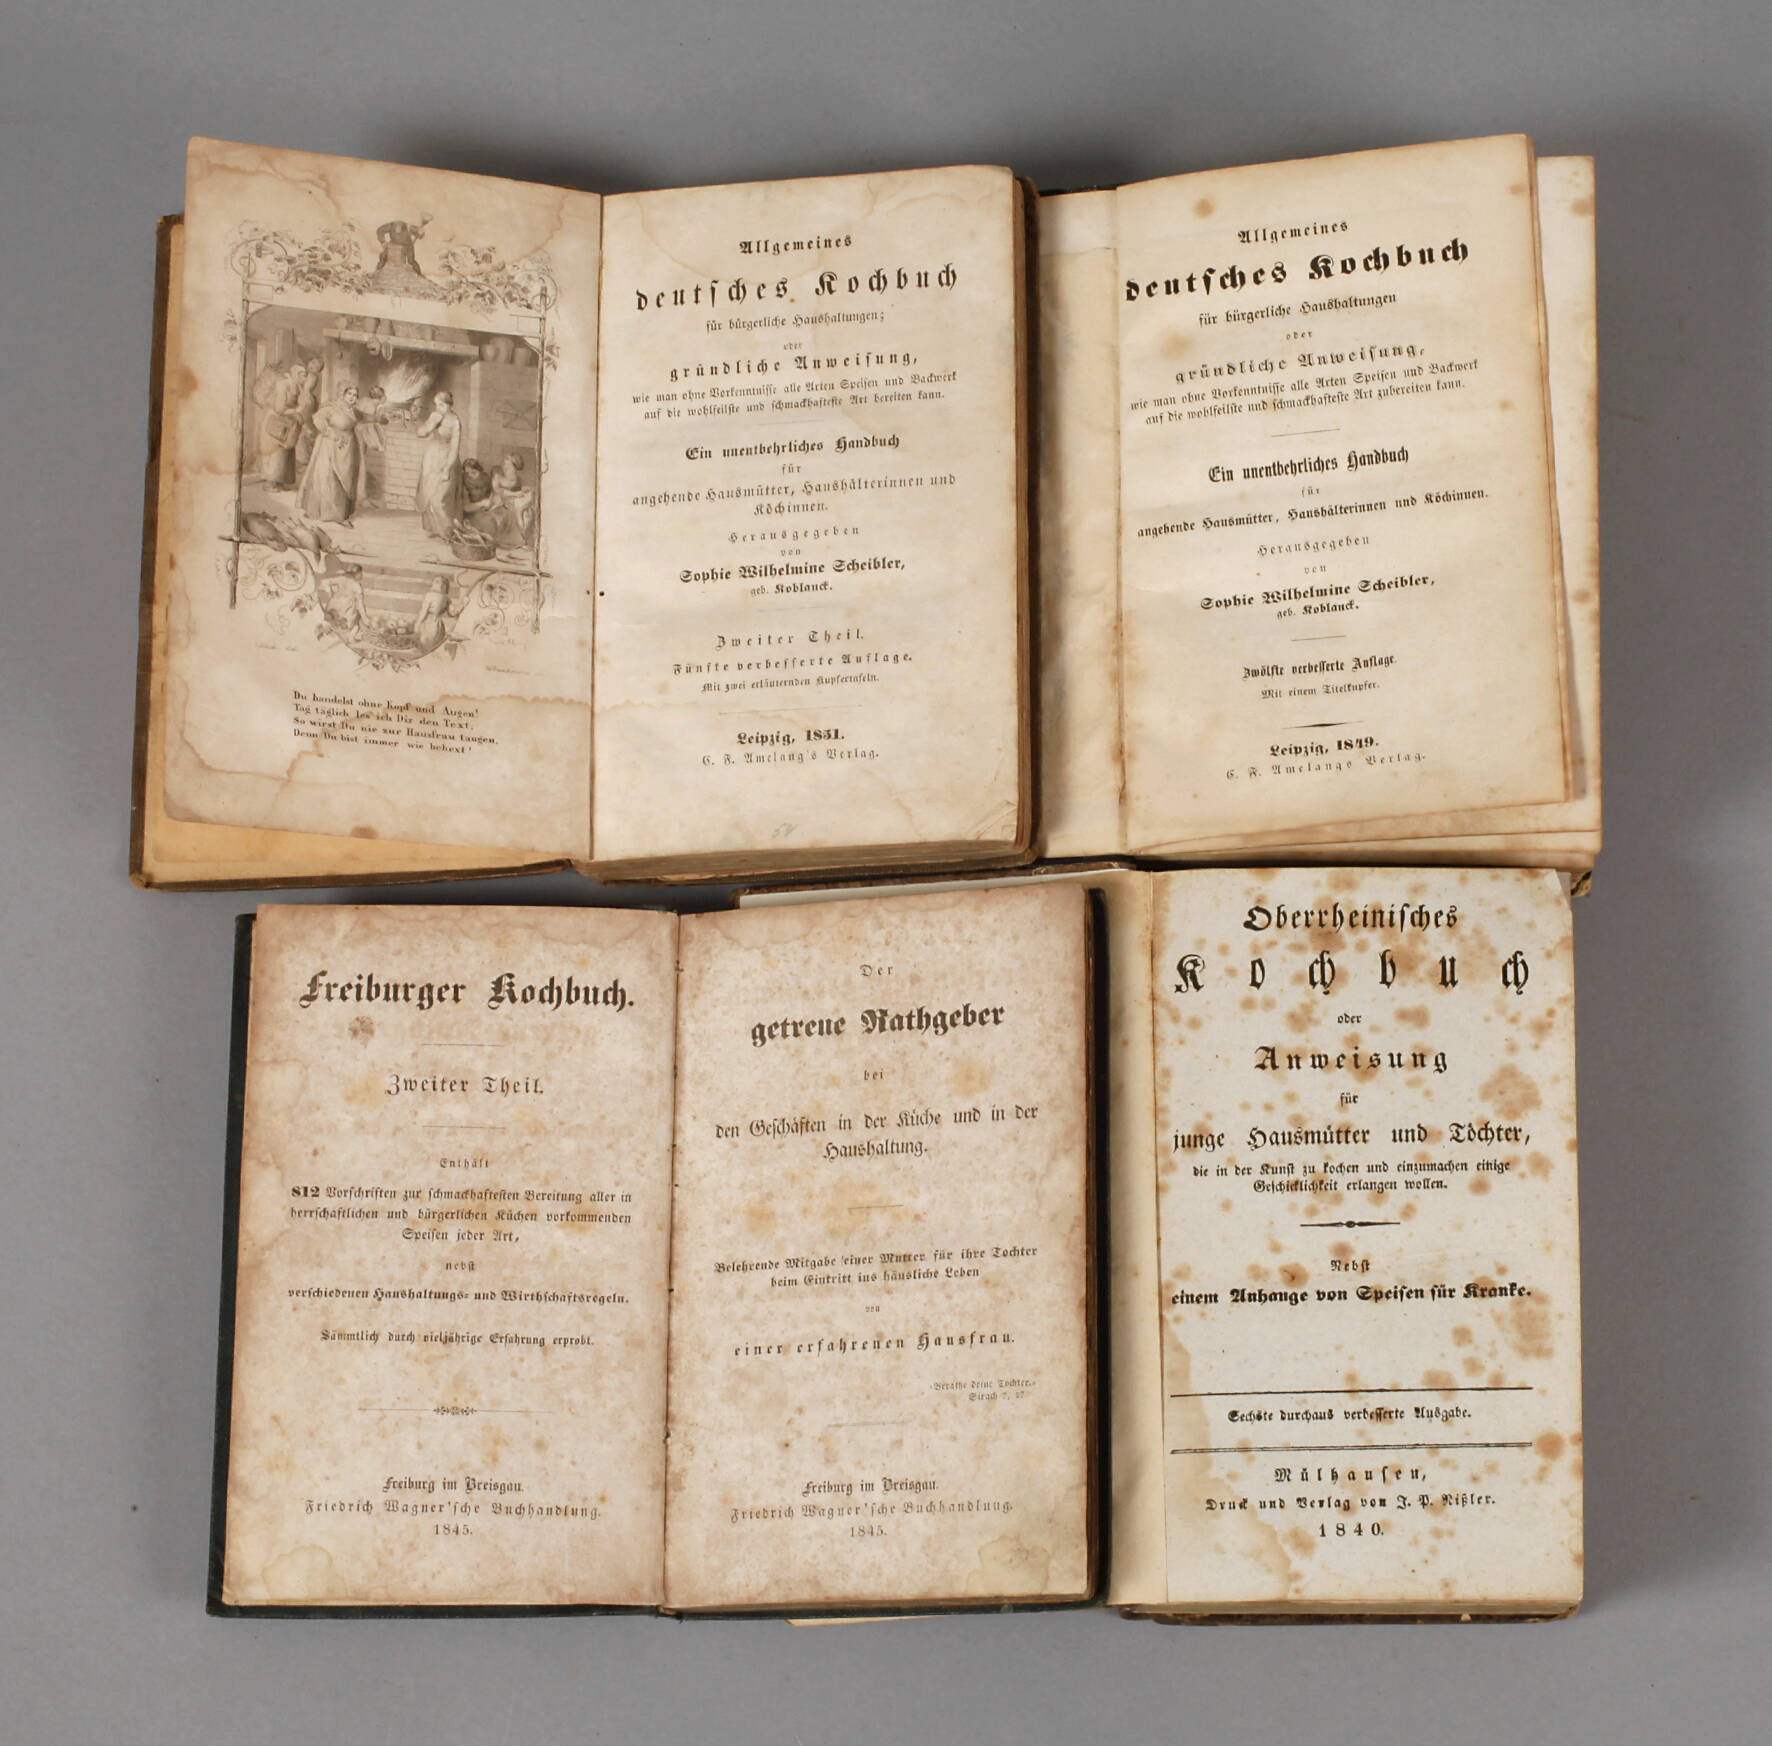 Du handelst ohne Kopf und Augen!
Tag täglich les ich Dir den Text,
So wirst Du nie zur Hausfrau taugen,
Denn Du bist immer wie behext!
Allgemeines
deutſches Kochbuch
für bürgerliche Haushaltungen;
oder
gründliche Anweiſung,
wie man ohne Vorkenntniſſe alle Arten Speiſen und Backwerk
auf die wohlfeilſte und ſchmackhafteſte Art bereiten kann.
Ein unentbehrliches Handbuch
für
angehende Hausmütter, Haushälterinnen und
Köchinnen.
Herausgegeben
von
Sophie Wilhelmine Scheibler,
geb. Koblanck.
Zweiter Theil.
Fünfte verbeſſerte Auflage.
Mit zwei erläuternden Kupfertafeln.
Leipzig, 1851.
C. F. Amelang's Verlag.
Allgemeines
deutſches Kochbuch
für bürgerliche Haushaltungen
oder
gründliche Anweiſung,
wie man ohne Vorkenntniſſe alle Arten Speiſen und Backwerk
auf die wohlfeilſte und ſchmackhafteſte Art zubereiten kann.
Ein unentbehrliches Handbuch
für
angehende Hausmütter, Haushälterinnen und Köchinnen.
Herausgegeben
von
Sophie Wilhelmine Scheibler,
geb. Koblanck.
Zwölfte verbeſſerte Auflage.
Mit einem Titelkupfer.
Leipzig, 1849.
C. F. Amelangs Verlag.
Freiburger Kochbuch.
Zweiter Theil.
Enthält
812 Vorſchriften zur ſchmackhafteſten Bereitung aller in
herrſchaftlichen und bürgerlichen Küchen vorkommenden
Speiſen jeder Art,
nebſt
verſchiedenen Haushaltungs- und Wirthſchaftsregeln.
Sämmtlich durch vieljährige Erfahrung erprobt.
Freiburg im Breisgau.
Friedrich Wagner'ſche Buchhandlung.
1845.
Der
getreue Rathgeber
bei
den Geſchäften in der Küche und in der
Haushaltung.
Belehrende Mitgabe einer Mutter für ihre Tochter
beim Eintritt ins häusliche Leben
von
einer erfahrenen Hausfrau.
„Berathe deine Tochter.“
Sirach 7, 27
Freiburg im Breisgau.
Friedrich Wagner'ſche Buchhandlung.
1845.
Oberrheiniſches
Kochbuch
oder
Anweisung
für
junge Hausmütter und Töchter,
die in der Kunſt zu kochen und einzumachen einige
Geſchicklichkeit erlangen wollen.
Nebſt
einem Anhange von Speiſen für Kranke.
Sechste durchaus verbeſſerte Ausgabe.
Mülhauſen,
Druck und Verlag von J. P. Rißler.
1840.